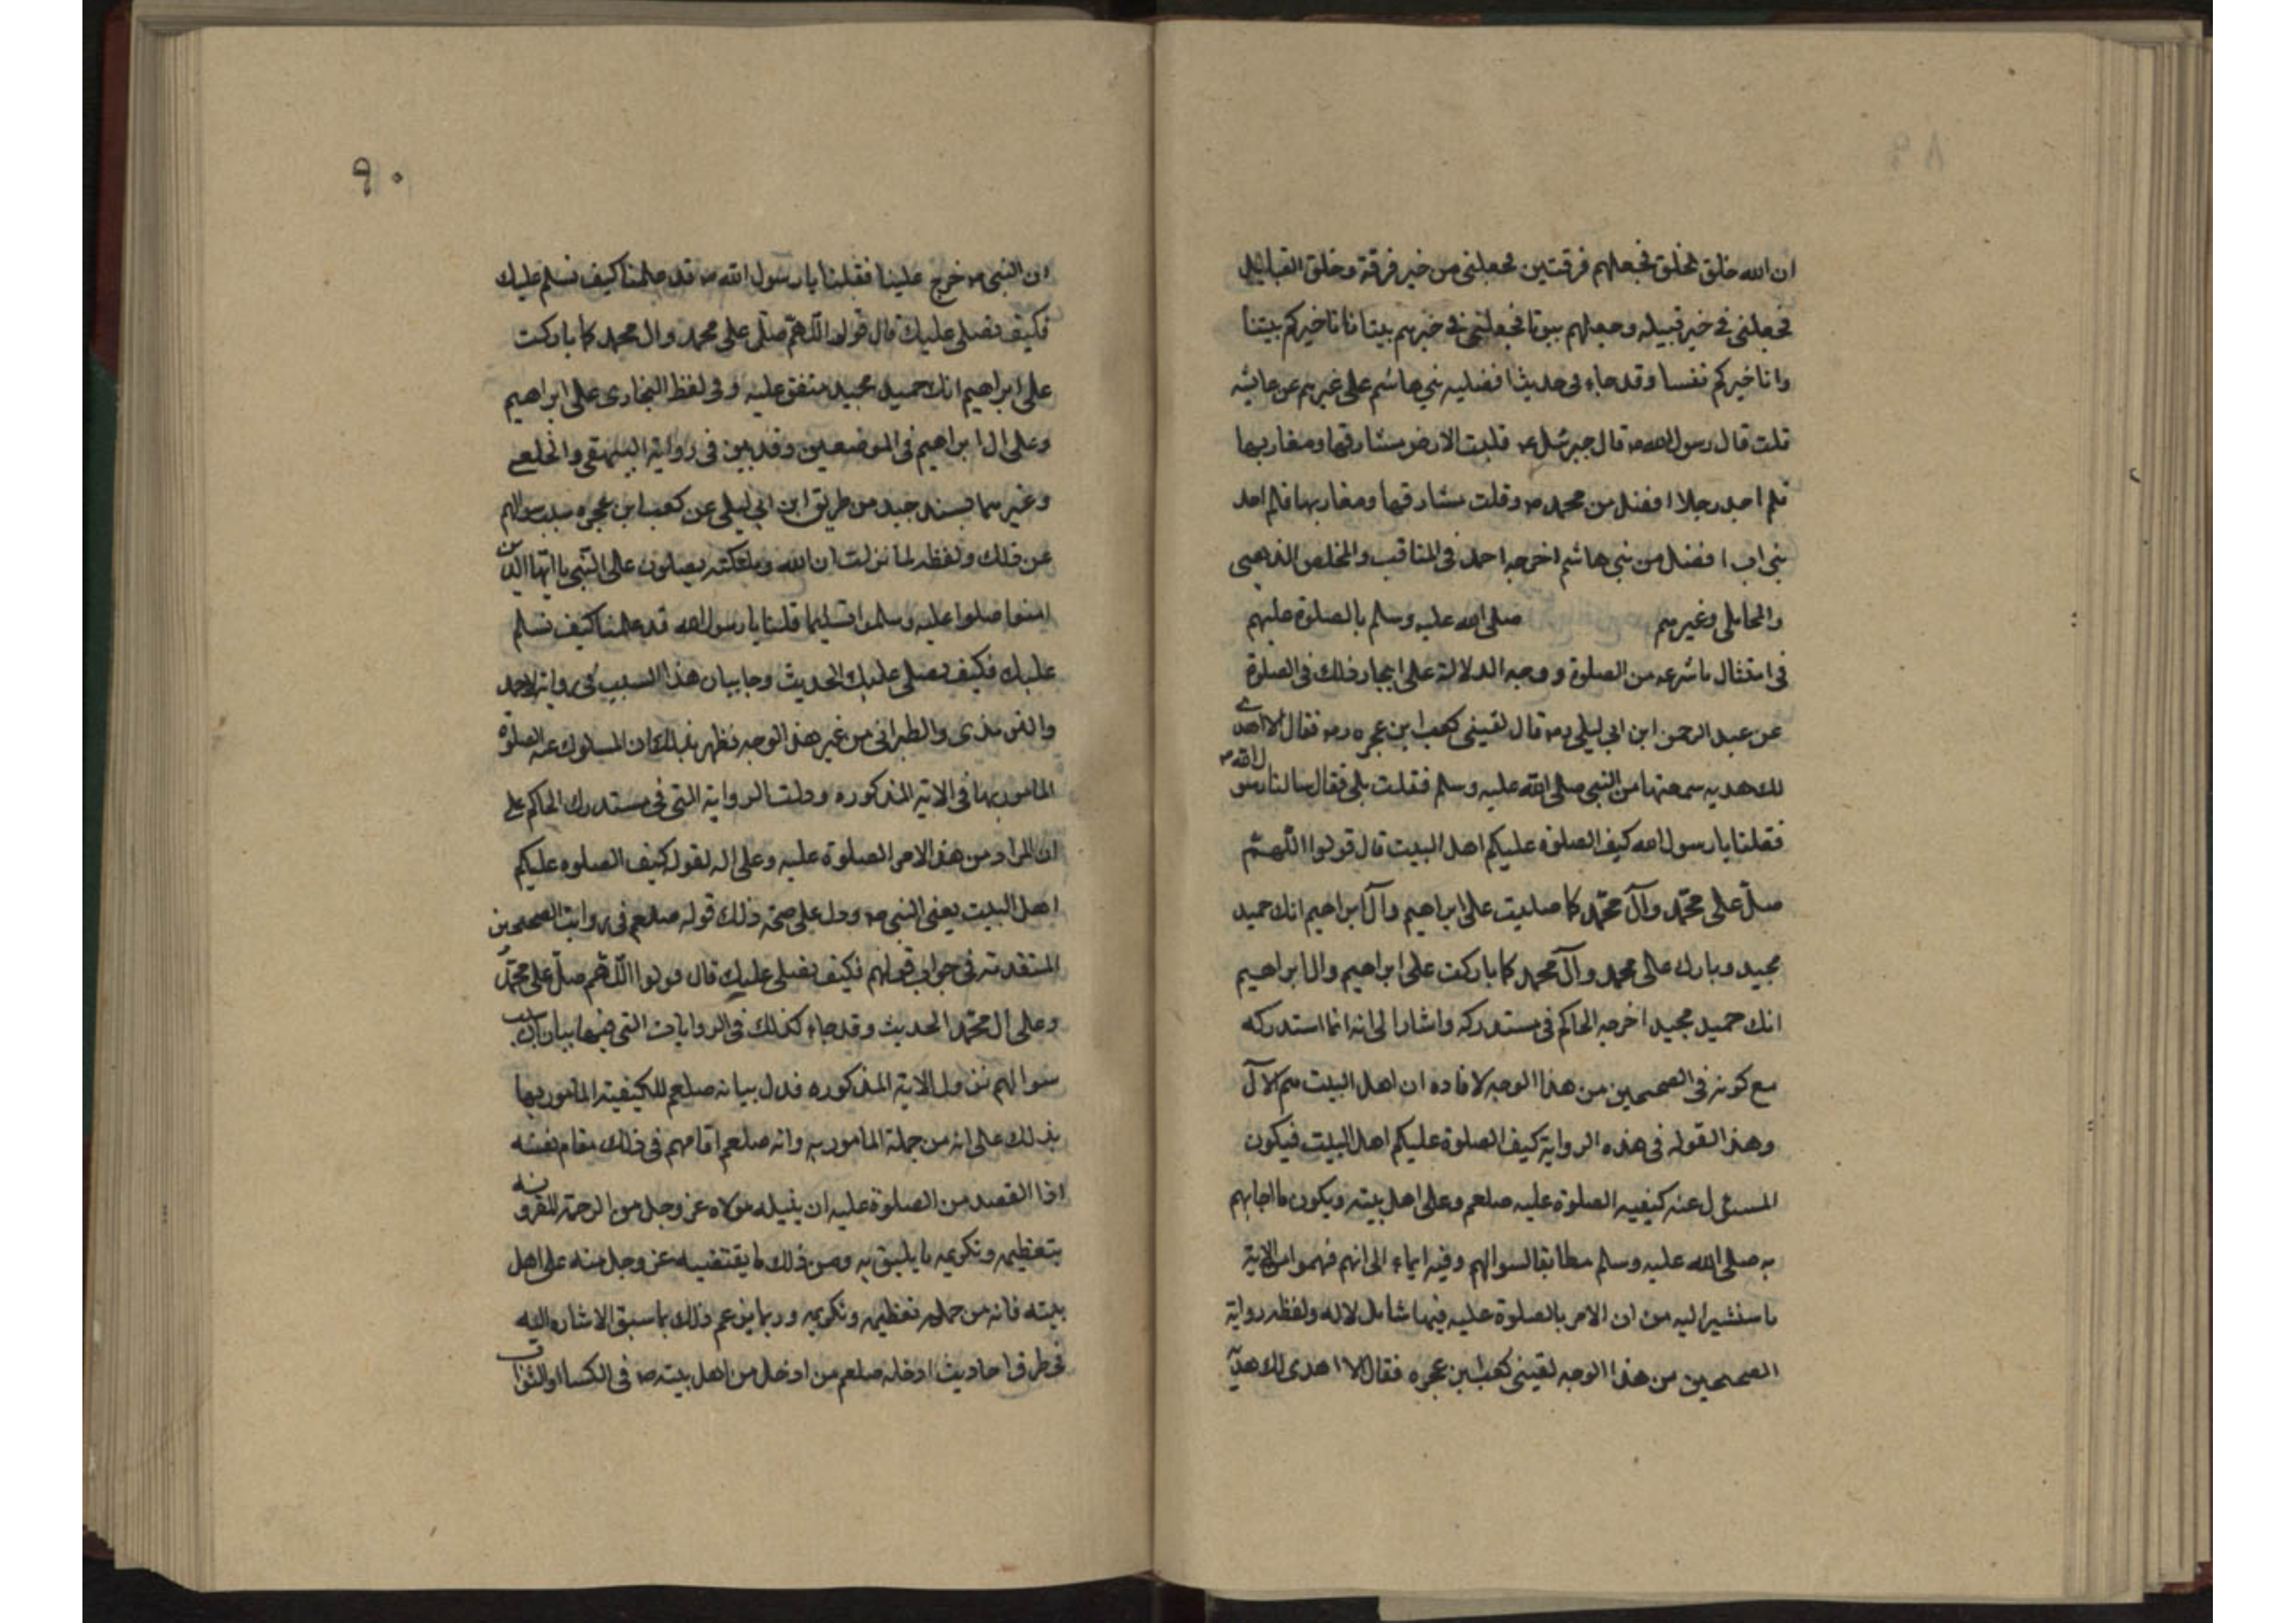 ان الله خلق الخلق فجعلهم فرقتين فجعلنى من خير فرقة وخلق القبايل
فجعلنى فى خير قبيله وجعلهم بيوتا فجعلنى فى خيرهم بيتا فانا خيركم بيتا
وانا خيركم نفسا وقد جاء فى حديث افضليه بنى هاشم على غيرهم عن عايشه
قلت قال رسول الله ص قال جبرئيل ع قلبت الارض مشارقها ومغاربها
فلم اجد رجلا افضل من محمد ص وقلبت مشارقها ومغاربها فلم اجد
بنى اب افضل من بنى هاشم اخرجه احمد فى المناقب والمخلص الذهبى
والمحاملى وغيرهم صلى الله عليه وسلم بالصلوة عليهم
فى امتثال ما شرعه من الصلوة ووجه الدلالة على ايجاب ذلك فى الصلوة
عن عبد الرحمن ابن ابى ليلى رض قال لقينى كعب ابن عجره رض فقال الا اهدى
لك هديه سمعتها من النبى صلى الله عليه وسلم فقلت بلى فقال سالنا رسول الله ص
فقلنا يا رسول الله كيف الصلوة عليكم اهل البيت قال قولوا اللهم
صل على محمد وآل محمد كما صليت على ابراهيم وآل ابراهيم انك حميد
مجيد وبارك على محمد وآل محمد كما باركت على ابراهيم وال ابراهيم
انك حميد مجيد اخرجه الحاكم فى مستدركه واشار الى انه انما استدركه
مع كونه فى الصحيحين من هذا الوجه لافاده ان اهل البيت هم الآل
وهذا لقوله فى هذه الرواية كيف الصلوة عليكم اهل البيت فيكون
المسئول عنه كيفيه الصلوة عليه صلعم وعلى اهل بيته ويكون ما اجابهم
به صلى الله عليه وسلم مطابقا لسوالهم وفيه ايماء الى انهم فهموا من الاية
ما سنشير اليه من ان الامر بالصلوة عليه فيها شامل لاله ولفظه رواية
الصحيحين من هذا الوجه لقينى كعب بن عجره فقال الا اهدى لك هدية
٩٠
ان النبى ص خرج علينا فقلنا يا رسول الله ص قد علمنا كيف نسلم عليك
فكيف نصلى عليك قال قولوا اللهم صل على محمد وال محمد كما باركت
على ابراهيم انك حميد مجيد متفق عليه وفى لفظ البخارى على ابراهيم
وعلى ال ابراهيم فى الموضعين وقد بين فى رواية البيهقى والخلعى
وغيرهما بسند جيد من طريق ابن ابى ليلى عن كعب ابن عجره سبب سوالهم
عن ذلك ولفظه لما نزلت ان الله وملئكته يصلون على النبى يا ايها الذين
امنوا صلوا عليه وسلموا تسليما قلنا يا رسول الله قد علمنا كيف نسلم
عليك فكيف نصلى عليك الحديث وجا بيان هذا السبب فى رواية لاحمد
والترمذى والطبرانى من غير هذا الوجه فظهر بذلك ان المسئول عنه الصلوة
المامور بها فى الاية المذكوره ودلت الرواية التى فى مستدرك الحاكم على
ان المراد من هذا الامر الصلوة عليه وعلى اله لقوله كيف الصلوه عليكم
اهل البيت يعنى النبى ص ودل على صحة ذلك قوله صلعم فى رواية الصحيحين
المتقدمة فى جواب قولهم فكيف نصلى عليك قال قولوا اللهم صل على محمد
وعلى ال محمد الحديث وقد جاء كذلك فى الروايات التى فيها بيان سبب
سوالهم نزول الاية المذكوره فدل بيانه صلعم للكيفية المامور بها
بذلك على انه من جملة المامور به وانه صلعم اقامهم فى ذلك مقام نفسه
اذا القصد من الصلوة عليه ان ينيله مولاه عز وجل من الرحمة المقرونه
بتعظيمه وتكريمه ما يليق به ومن ذلك ما يقتضيه عز وجل منه على اهل
بيته فانه من جملة تعظيمه وتكريمه وربما يزعم ذلك بما سبق الاشاره اليه
فى طرق احاديث ادخاله صلعم من ادخل من اهل بيته ص فى الكسا او الثوب